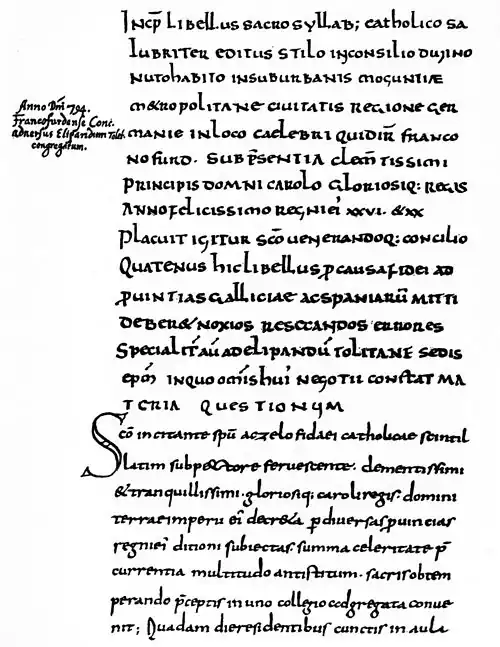 INCP LIBELLUS SACROSYLLAB; CATHOLICO SA
LUBRITER EDITUS STILO INCONSILIO DIUINO
NUTO HABITO INSUBURBANIS MOGUNTIAE
METROPOLITANE CIUITATIS REGIONE GER
Anno Dñi 794.
Francofurdense Conc.
adversus Elipandum Tolet.
congregatum.
MANIE INLOCO CAELEBRI QUI DICIR FRANCO
NOFURD. SUB PSENTIA CLEMTISSIMI
PRINCIPIS DOMNI CAROLO GLORIOSIQ: REGIS
ANNO FELICISSIMO REGNI EI XXVI. &XX
PLACUIT IGITUR SCO UENERANDOQ: CONCILIO
QUATENUS HIC LIBELLUS P CAUSA FIDEI AD
PUINTIAS GALLICIAE AC SPANIARU MITTI
DEBER& NOXIOS RESECANDOS ERRORES
SPECIALIT AU AD ELIPANDU TOLITANE SEDIS
EPM INQUO OMIS HUI NEGOTII CONSTAT MA
TERIA QUESTIONUM
Sco incitante spu ac zelo fidaei catholicae scintil
latim sub pectore feruescente. clementissimi
& tranquillissimi. gloriosiq; caroli regis. domini
terrae imperii ei decreta p diuersas puincias
regni ei ditioni subiectas. summa celeritate p
currentia multitudo antistitum. sacris obtem
perando pceptis in uno collegio codgregata conue
nit; Quadam die residentibus cunctis in aula